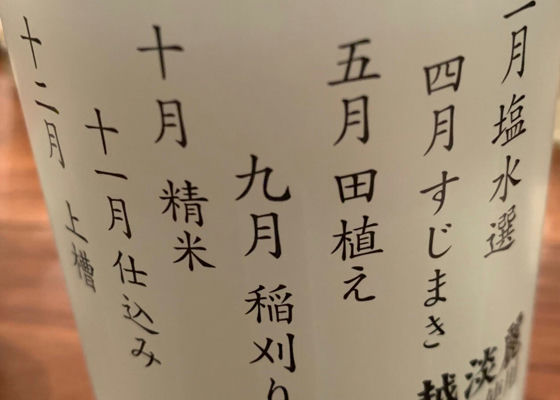 月 塩水選
四月 すじまき
五月 田植え
九月 稲刈り
十月 精米
十一月 仕込み
十二月 上槽
越淡麗